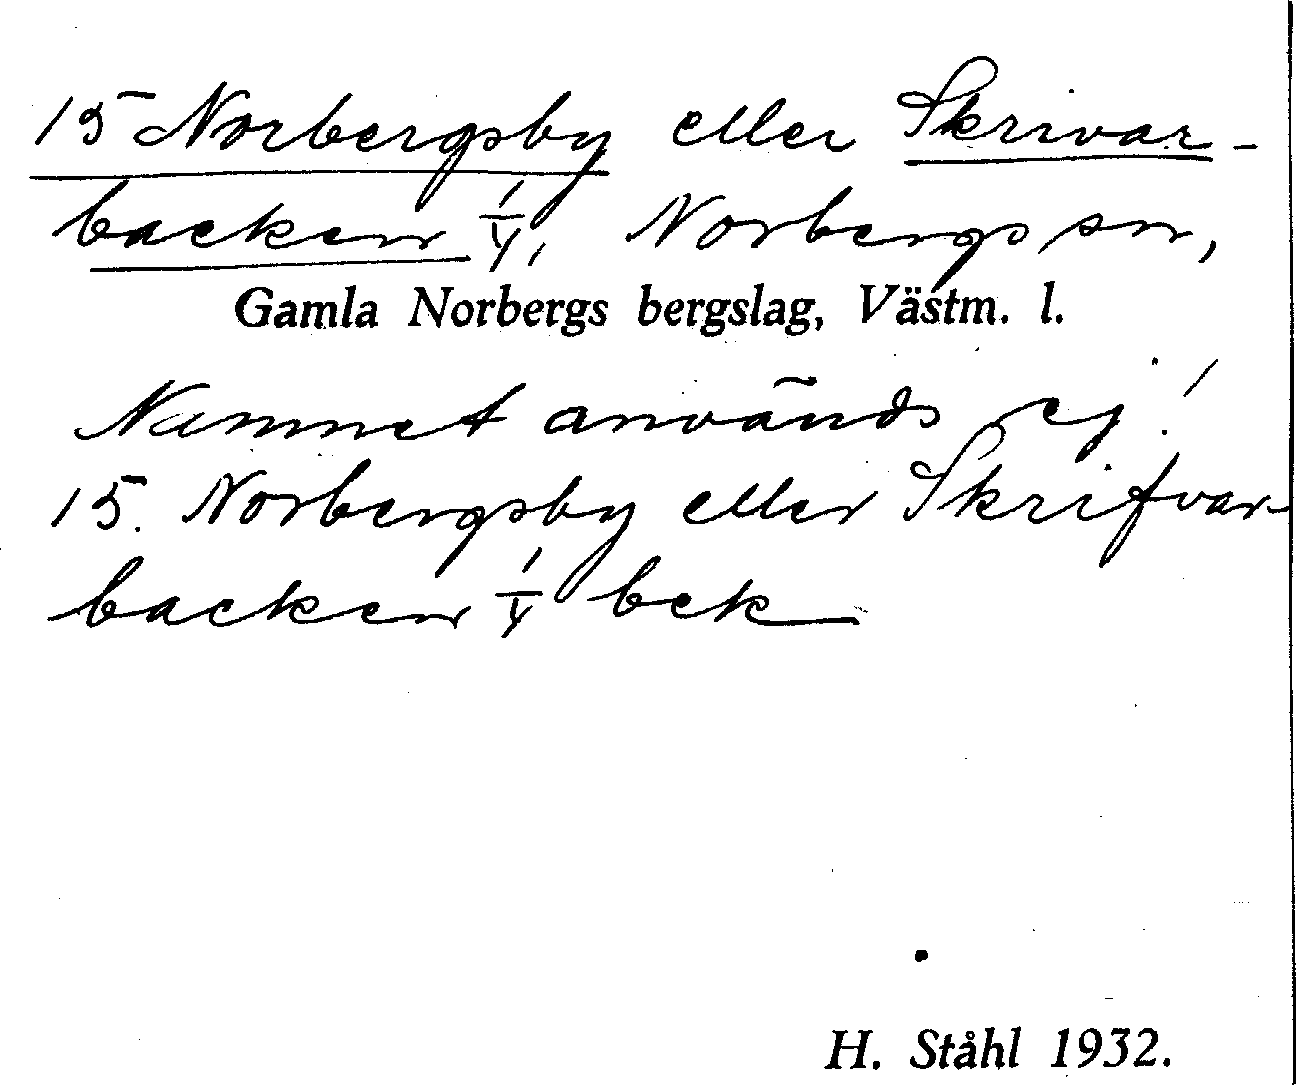 15 Norbergsby eller Skrivar-
backen 1/4, Norbergs sn,
Gamla Norbergs bergslag, Västm. l.
Namnet används ej!
15. Norbergsby eller Skrifvar-
backen 1/4 bek
H. Ståhl 1932.